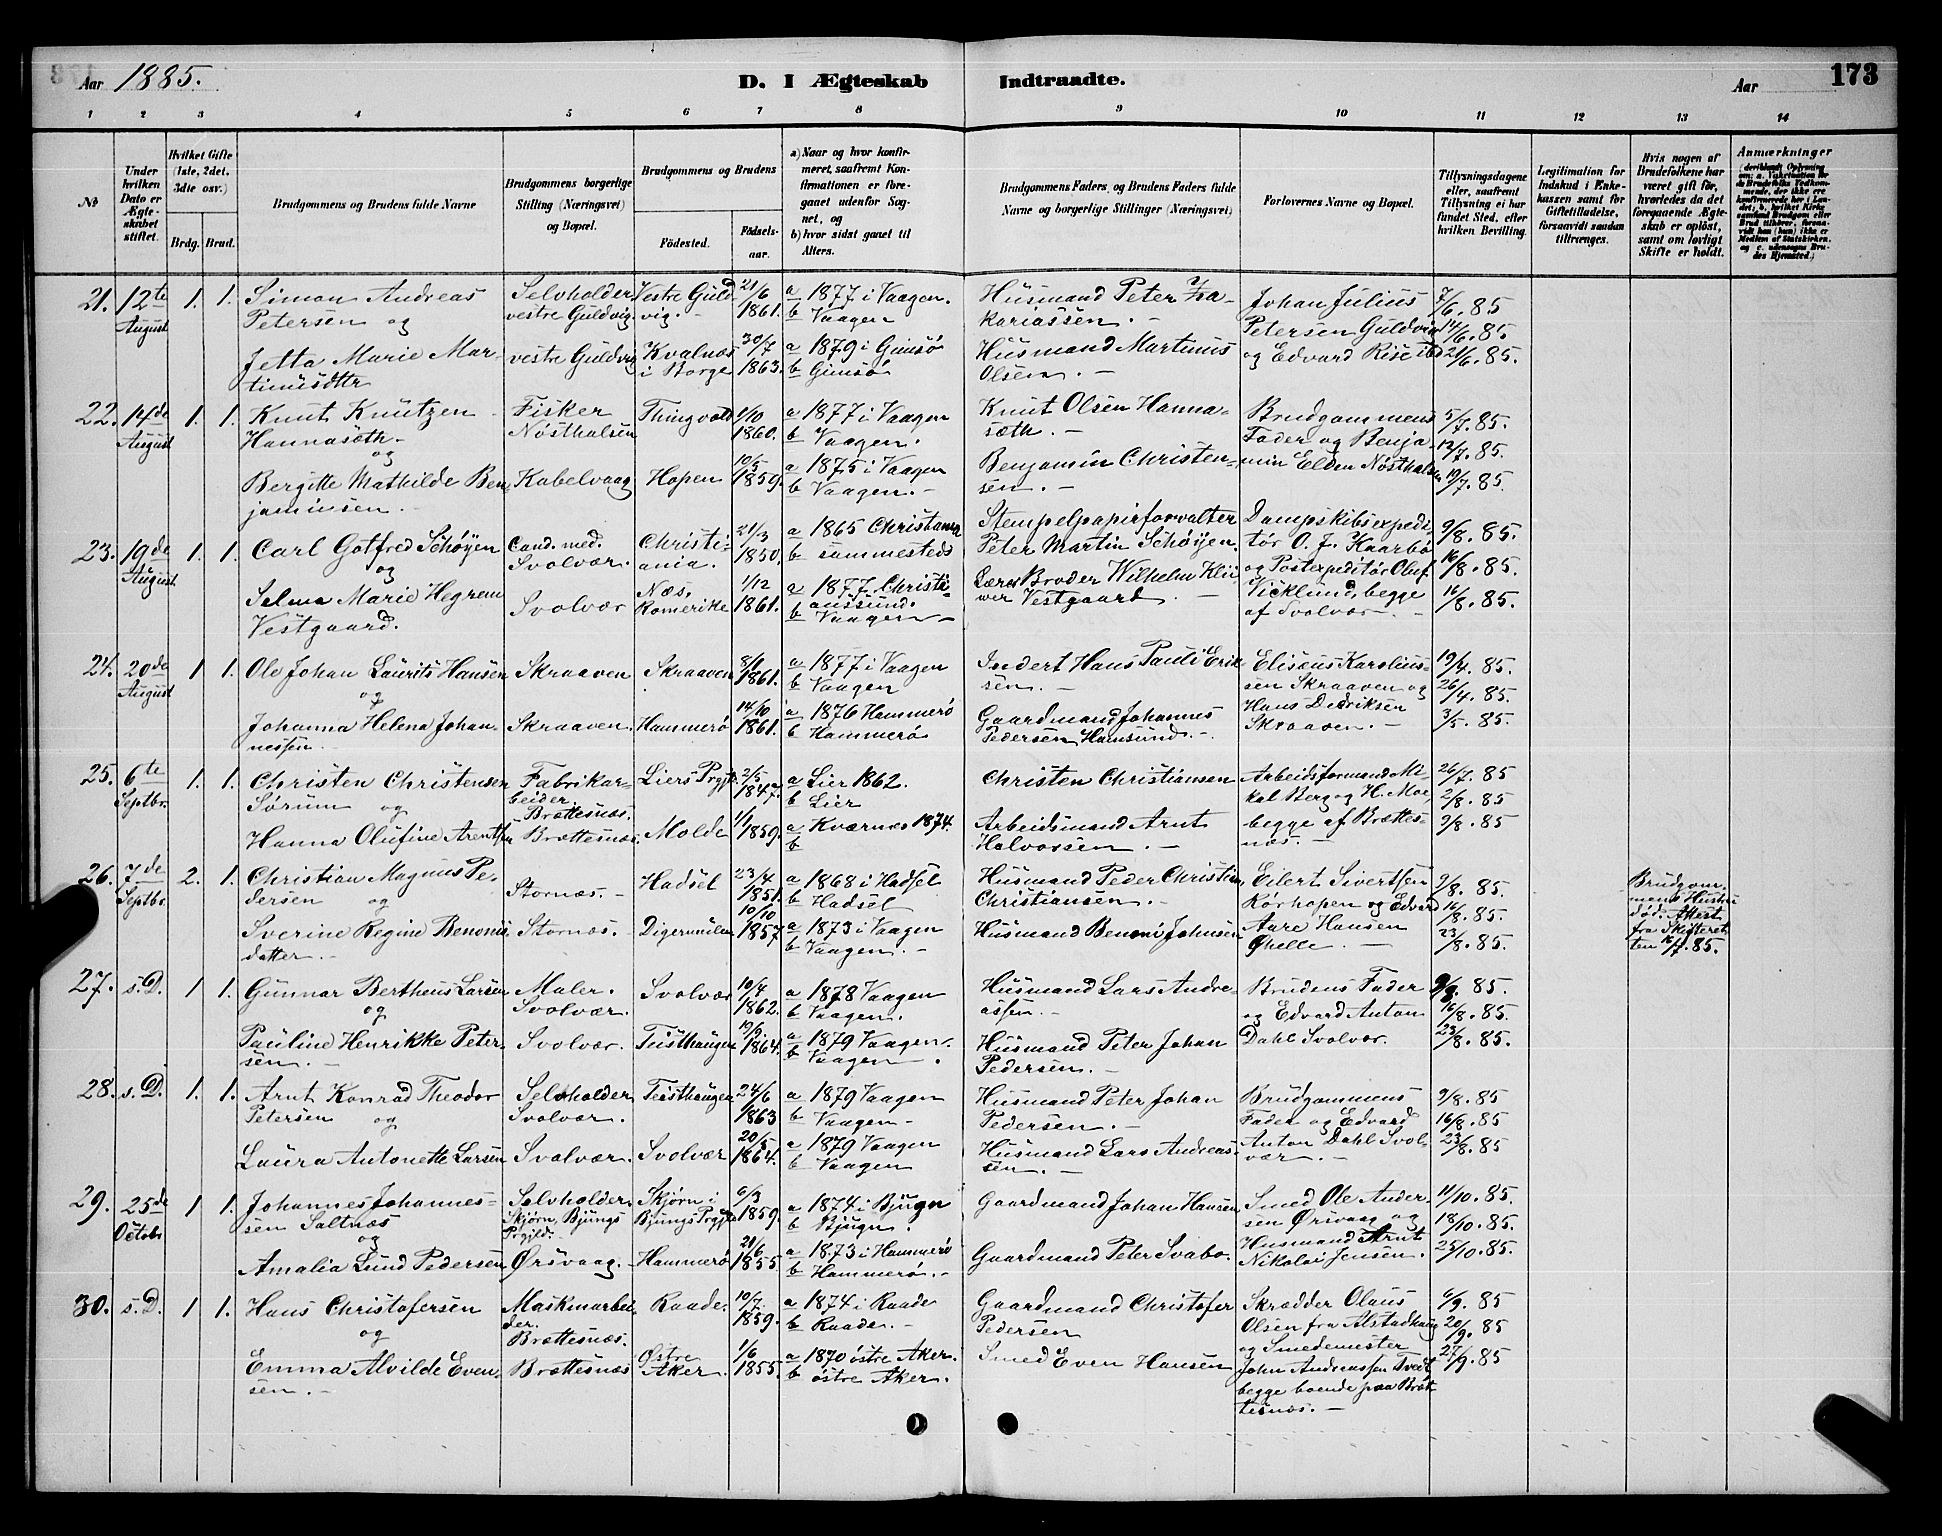 Aar 1885.
D. I Ægteskab Indtraadte.
Aar
173
1 2 3 4 5 6 7 8 9 10 11 12 13 14
No
Under hvilken Dato er Ægteskabet stiftet.
Hvilket Gifte (1ste, 2det, 3die osv.)
Brdg. Brud.
Brudgommens og Brudens fulde Navne
Brudgommens borgerlige Stilling (Næringsvei) og Bopæl.
Brudgommens og Brudens
Fødested.
Fødselsaar.
a) Naar og hvor konfirmeret, saafremt Konfirmationen er foregaaet udenfor Sognet, og
b) hvor sidst gaaet til Alters.
Brudgommens Faders, og Brudens Faders fulde Navne og borgerlige Stillinger (Næringsvei)
Forlovernes Navne og Bopæl.
Tillysningsdagene eller, saafremt Tillysning ei har fundet Sted, efter hvilken Bevilling.
Legitimation for Indskud i Enkekassen samt for Giftetilladelse, forsaavidt saadan tiltrænges.
Hvis nogen af Brudefolkene har været gift før, hvorledes da det foregaaende Ægteskab er opløst, samt om lovligt Skifte er holdt.
Anmærkninger
21. 12te August 1. 1.
Simon Andreas Petersen og
Selvholder vestre Guldvig.
Vestre Guldvig.
21/6 1861.
a 1877 i Vaagen.
b Vaagen
Husmand Peter Zakariassen.
Johan Julius Petersen Guldvig og Edvard Rise ibd
7/6. 85
14/6. 85.
21/6. 85.
Jetta Marie Martinusdttr
vestre Guldvig
Kvalnæs i Borge
30/7 1863.
a 1879 i Gimsø
b Gimsø
Husmand Martinus Olsen.
22. 14de August 1. 1.
Knut Knutzen Hannasæth og
Fisker Nøstholsen
Thingvold
1/10 1860.
a 1877 i Vaagen
b Vaagen.
Knut Olsen Hannasæth.
Brudgommens Fader og Benjamin Elden Nøstholsen
5/7. 85.
12/7. 85.
19/7. 85.
Bergitte Mathilde Benjaminsen.
Kabelvaag
Hopen
10/5 1859.
a 1875 i Vaagen
b Vaagen.
Benjamin Christensen.
23. 19de August 1. 1.
Carl Gotfred Schøyen og
Cand. med. Svolvær.
Christiania.
21/3 1850.
a 1865 Christiania
b sammesteds
Stempelpapirforvalter Peter Martin Schøyen.
Dampskibsexpeditør O. J. Kaarbø og Postexpeditør Oluf Vicklund, begge af Svolvær.
9/8. 85.
16/8. 85.
16/8. 85.
Selma Marie Hegrem Vestgaard.
Svolvær
Næs, Romerike
1/12 1861.
a 1877 Christianssund.
b Vaagen
Lærer Broder Wilhelm Kluwer Vestgaard.
24. 20de August 1 1.
Ole Johan Laurits Hansen og
Skraaven
Skraaven
8/1 1861.
a 1877 i Vaagen
b Vaagen
Inderst Hans Pauli Eriksen.
Elisæus Karoliussen Skraaven og Hans Dedriksen Skraaven.
19/4. 85.
26/4. 85.
3/5. 85.
Johanna Helena Johannessen.
Skraaven.
Hammerø
14/10 1861.
a 1876 Hammerø
b Hammerø
Gaardmand Johannes Pedersen Hamsund.
25. 6te Septbr. 1. 1.
Christen Christensen Sørum og
Fabrikarbeider. Brættesnæs.
Liers Prgjld.
2/5 1847.
a Lier 1862.
b Lier
Christen Christiansen
Arbeidsformand Mikal Berg og H. Moe, begge af Brættesnæs.
26/7. 85
2/8. 85
9/8. 85
Hanna Olufine Arentsen
Brættesnæs.
Molde
1/1 1859.
a Kværnæs 1874.
b
Arbeidsmand Arnt Halvorsen.
26. 7de Septbr. 2. 1.
Christian Magnus Pedersen og
Stornæs.
Hadsel
23/4 1851.
a 1868 i Hadsel
b Hadsel
Husmand Peder Christian Christiansen.
Eilert Sivertsen Rørhopen og Edvard Aare Hansen Qvelle.
9/8. 85.
16/8. 85.
23/8. 85.
Brudgommens Hustru død. Attest fra Skifteretten 16/7. 85.
Sverine Regine Benonisdatter.
Stornæs.
Digermulen
10/10 1857.
a 1873 i Vaagen
b Vaagen.
Husmand Benoni Johnsen
27. s. D. 1 1.
Gunnar Bertheus Larsen og
Maler. Svolvær.
Svolvær
10/4 1862.
a 1878 Vaagen
b Vaagen.
Husmand Lars Andreassen.
Brudens Fader og Edvard Anton Dahl Svolvær.
9/8. 85.
16/8. 85.
23/8. 85.
Pauline Henrikke Petersen.
Svolvær.
Teisthaugen
19/9. 1864.
a 1879 Vaagen.
b Vaagen.
Husmand Peter Johan Pedersen.
28. s. D. 1. 1.
Arnt Konrad Theodor Petersen og
Selvholder Svolvær.
Teisthaugen
24/6 1863
a 1879 Vaagen
b Vaagen
Husmand Peter Johan Pedersen.
Brudgommens Fader og Edvard Anton Dahl Svolvær.
9/8. 85
16/8. 85
23/8. 85
Laura Antonette Larsen
Svolvær.
Svolvær
20/5 1864.
a 1879 Vaagen
b Vaagen
Husmand Lars Andreassen.
29. 25de Octobr 1 1.
Johannes Johannessen Saltnæs og
Selvholder Skjørn, Bjungs Prgjld.
Skjørn i Bjungs Prgjld
6/3 1859.
a 1874 i Bjugn
b Bjugn.
Gaardmand Johan Hansen
Smed Ole Andersen Ørsvaag og Husmand Arnt Nikolai Jensen.
11/10. 85.
18/10. 85.
25/10. 85.
Amalia Lund Pedersen
Ørsvaag.
Hammerø
21/6. 1855
a 1873 i Hammerø
b Hammerø.
Gaardmand Peter Svabo.
30. s. D. 1 1.
Hans Christofersen og
Maskinarbeider. Brættesnæs.
Raade.
10/7. 1859.
a 1874 i Raade
b Raade.
Gaardmand Christofer Pedersen
Skrædder Olaus Olsen fra Alstadhaug og Smedemester John Andreassen Tvedt begge boende paa Brættesnæs.
6/9. 85
20/9. 85
27/9. 85
Emma Alvilde Evensen.
Brættesnæs
Østre Aker.
1/6 1855.
a 1870 østre Aker.
b østre Aker.
Smed Even Hansen